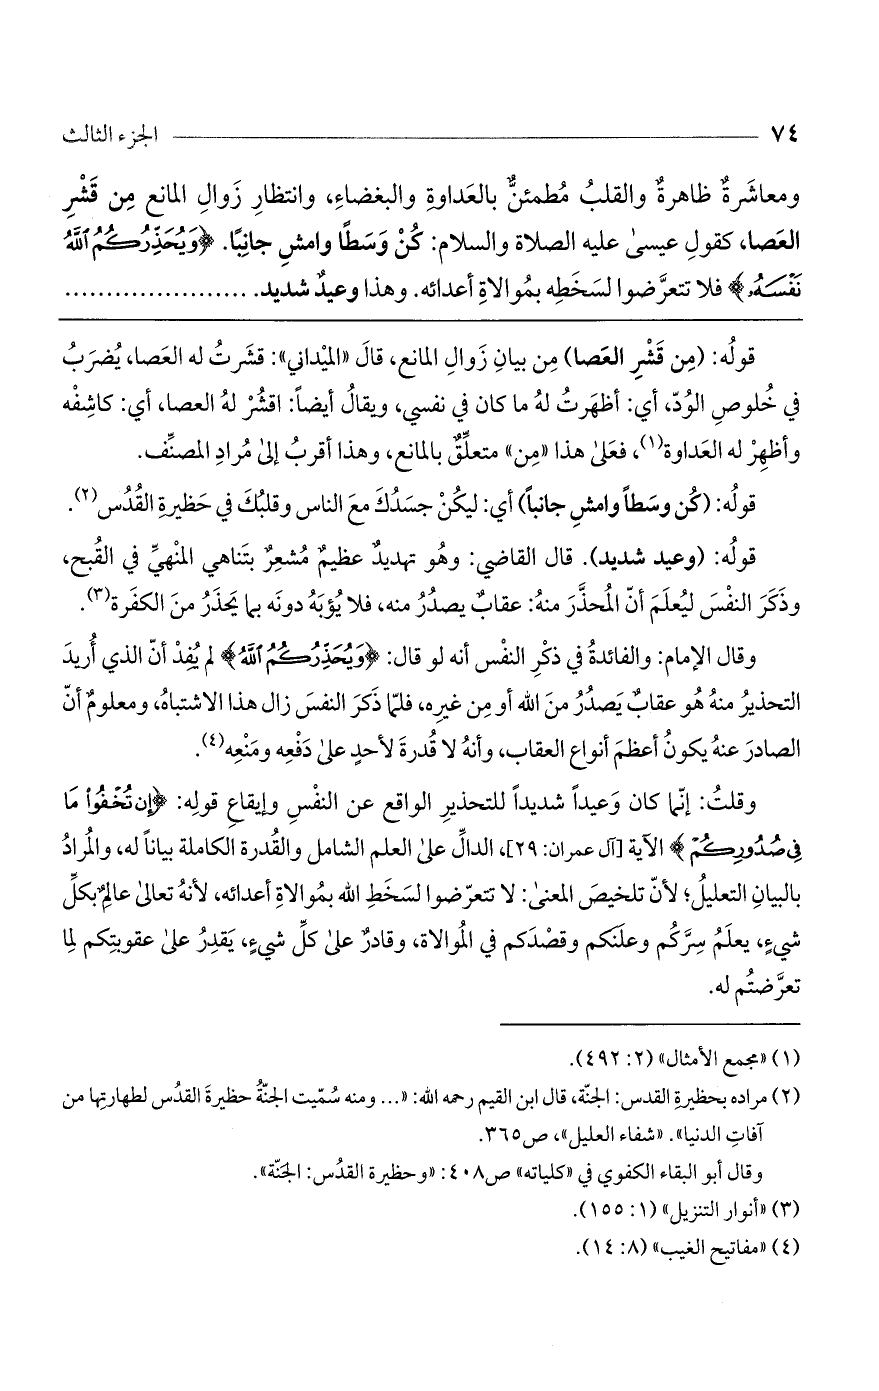 ٧٤ الجزء الثالث
ومعاشَرةٌ ظاهرةٌ والقلبُ مُطمئنٌّ بالعَداوةِ والبغضاءِ، وانتظارِ زَوالِ المانع مِن قَشْرِ
العَصا، كقولِ عيسىٰ عليه الصلاة والسلام: كُنْ وَسَطًا وامشِ جانِبًا. ﴿وَيُحَذِّرُكُمُ ٱللَّهُ
نَفْسَهُۥ﴾ فلا تتعرَّضوا لسَخَطِه بمُوالاةِ أعدائه. وهذا وعيدٌ شديد. ......................
قولُه: (مِن قَشْرِ العَصا) مِن بيانِ زَوالِ المانع، قالَ «الميْداني»: قشَرتُ له العَصا، يُضرَبُ
في خُلوصِ الوُدّ، أي: أظهَرتُ لهُ ما كان في نفسي، ويقالُ أيضاً: اقشُرْ لهُ العصا، أي: كاشِفْه
وأظهِرْ له العَداوة(١)، فعَلىٰ هذا «مِن» متعلِّقٌ بالمانع، وهذا أقربُ إلىٰ مُرادِ المصنِّف.
قولُه: (كُن وسَطاً وامشِ جانباً) أي: ليكُنْ جسَدُكَ معَ الناس وقلبُكَ في حَظيرةِ القُدُس(٢).
قولُه: (وعيد شديد). قال القاضي: وهُو تهديدٌ عظيمٌ مُشعِرٌ بتَناهي المنْهيِّ في القُبح،
وذَكَرَ النفْسَ ليُعلَمَ أنّ المُحذَّرَ منهُ: عقابٌ يصدُرُ منه، فلا يُؤبَهُ دونَه بما يَحذَرُ منَ الكفَرة(٣).
وقال الإمام: والفائدةُ في ذكْرِ النفْس أنه لو قال: ﴿وَيُحَذِّرُكُمُ ٱللَّهُ﴾ لم يُفِدْ أنّ الذي أُريدَ
التحذيرُ منهُ هُو عقابٌ يَصدُرُ منَ الله أو مِن غيرِه، فلمّا ذَكَرَ النفسَ زال هذا الاشتباهُ، ومعلومٌ أنّ
الصادرَ عنهُ يكونُ أعظمَ أنواع العقاب، وأنهُ لا قُدرةَ لأحدٍ علىٰ دَفْعِه ومَنْعِه(٤).
وقلتُ: إنّما كان وَعيداً شديداً للتحذيرِ الواقع عن النفْسِ وإيقاعِ قولِه: ﴿إِن تُخْفُوا۟ مَا
فِى صُدُورِكُمْ﴾ الآية [آل عمران: ٢٩]، الدالِّ علىٰ العلم الشامل والقُدرة الكاملة بياناً له، والمُرادُ
بالبيانِ التعليلُ؛ لأنّ تلخيصَ المعنىٰ: لا تتعرّضوا لسَخَطِ الله بمُوالاةِ أعدائه، لأنهُ تعالىٰ عالِمٌ بكلِّ
شيءٍ، يعلَمُ سِرَّكُم وعلَنَكم وقصْدَكم في المُوالاة، وقادرٌ علىٰ كلِّ شيءٍ، يَقدِرُ علىٰ عقوبتِكم لِما
تعرَّضتُم له.
(١) «مجمع الأمثال» (٢: ٤٩٢).
(٢) مراده بحظيرةِ القدس: الجنّة، قال ابن القيم رحمه الله: «... ومنه سُمّيت الجنّةُ حظيرةَ القدُس لطهارتِها من
آفاتِ الدنيا». «شفاء العليل»، ص٣٦٥.
وقال أبو البقاء الكفوي في «كلياته» ص٤٠٨: «وحظيرة القدُس: الجَنّة».
(٣) «أنوار التنزيل» (١: ١٥٥).
(٤) «مفاتيح الغيب» (٨: ١٤).